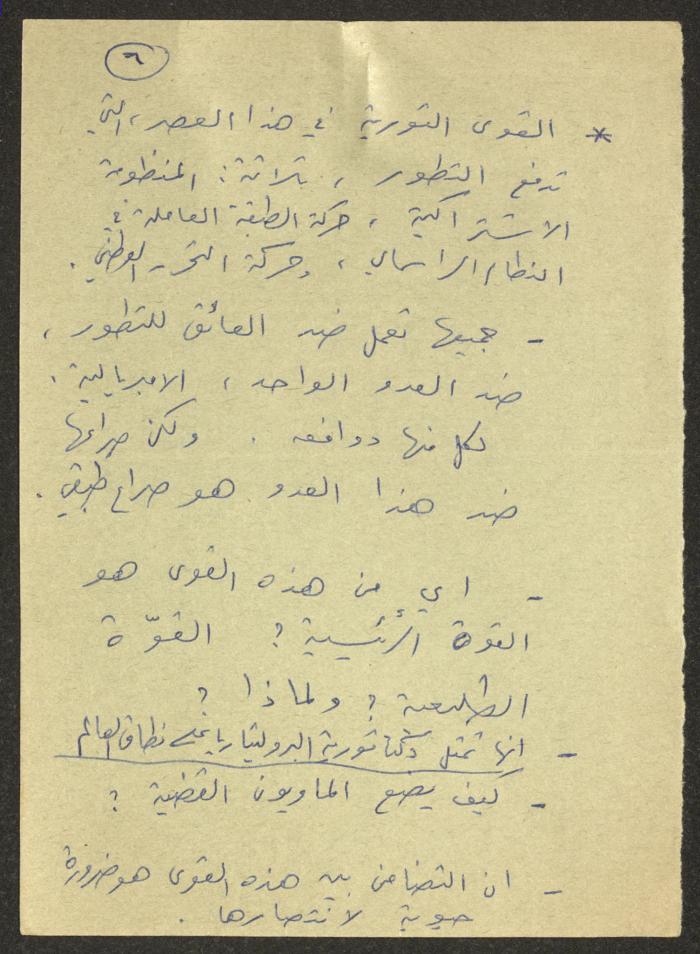 ٦
* القوى الثورية في هذا العصر، التي
تدفع التطور، ثلاثة: المنظومة
الاشتراكية، حركة الطبقة العاملة في
النظام الراسمالي، وحركة التحرر الوطني.
- جميعها تعمل ضد العائق للتطور،
ضد العدو الواحد، الامبريالية.
لكل منها دوافعه. ولكن صراعها
ضد هذا العدو هو صراع طبقي.
- اي من هذه القوى هو
القوة الرئيسية؟ القوّة
الطليعية؟ ولماذا؟
- انها تمثل دكتاتورية البروليتاريا على نطاق العالم
- كيف يضع الماويون القضية؟
- ان التضامن بين هذه القوى هو ضرورة
حيوية لانتصارها.